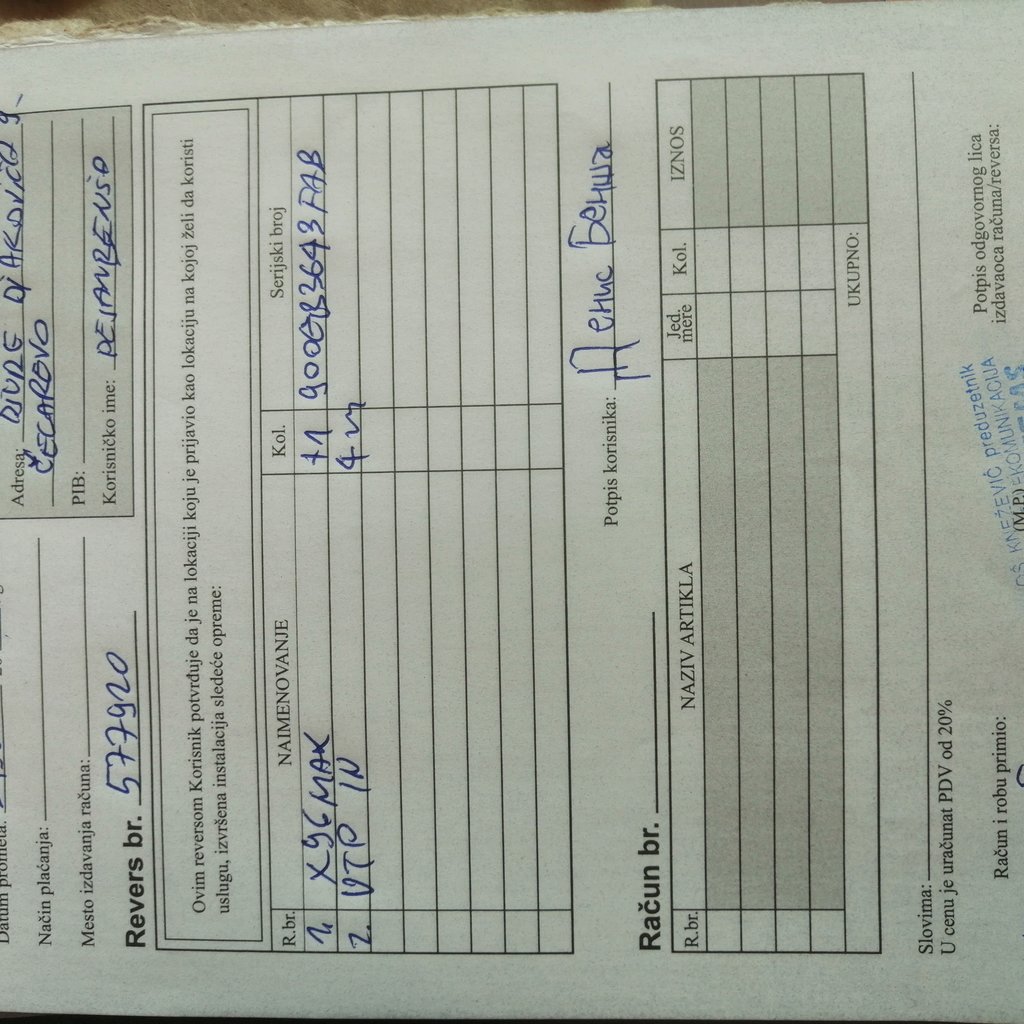 Datum prometa:
Način plaćanja:
Mesto izdavanja računa:
Adresa: ĐURE ĐAKOVIĆA 9
ČEČAROVO
PIB:
Korisničko ime:
Revers br. 577920
Ovim reversom Korisnik potvrđuje da je na lokaciji koju je prijavio kao lokaciju na kojoj želi da koristi
uslugu, izvršena instalacija sledeće opreme:
R.br. NAIMENOVANJE Kol. Serijski broj
1. X96 MAX 1 900EB3643FAB
2. UTP IN 4 m
Potpis korisnika: Денис Бенша
Račun br.
R.br. NAZIV ARTIKLA Jed. mere Kol. IZNOS
UKUPNO:
Slovima:
U cenu je uračunat PDV od 20%
Račun i robu primio:
(M.P.)
Potpis odgovornog lica
izdavaoca računa/reversa:
KNEŽEVIĆ preduzetnik